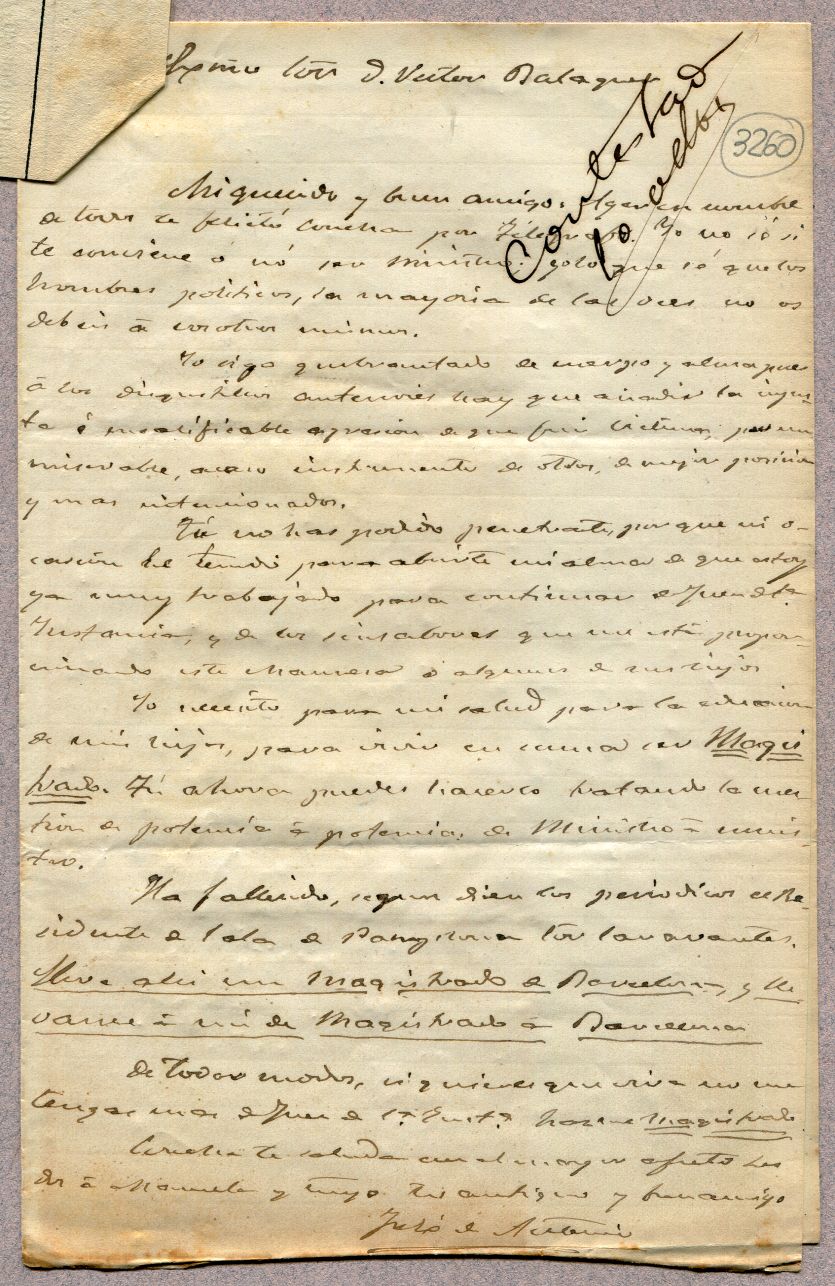 Exmo Sor D. Victor Balaguer
Contestada
10 oclbr
3260
Mi querido y buen amigo: Ayer en nombre
de todos te felicitó Concha por Telegrafo. Yo no sé si
te conviene ó nó ser ministro: solo que sé que los
hombres politicos, la mayoria de las veces no os
debeis á vosotros mismos.
Yo sigo quebrantado de cuerpo y alma pues
á los disgustillos anteriores hay que añadir la injus-
ta é incalificable agresion de que fui victima, por un
miserable, acaso instrumento de otros, de mejor posicion
y mas intencionados.
Tú no has podido penetrarte, por que ni o-
casion he tenido para abrirte mi alma de que estoy
ya muy trabajado para continuar de Juez de 1ª
Instancia, y de los sinsabores que me está propor-
cionando este Manresa ó algunos de sus hijos
Yo necesito para mi salud para la educacion
de mis hijos, para vivir en suma ser Magis
trado. Tú ahora puedes hacerlo tratando la cues-
tion de potencia á potencia, de Ministro á minis-
tro.
Ha fallecido, segun dicen los periodicos el Pre-
sidente de Sala de Pamplona Sor
Lleve alli un Magistrado de Barcelona, y lle
varme á mi de Magistrado á Barcelona
De todos modos, si quieres que viva no me
tengas mas de Juez de 1ª Instª hazme Magistrado
Concha te saluda con el mayor afeto
á Manuela y tuyo tu antiguo y buen amigo
José de Antonio